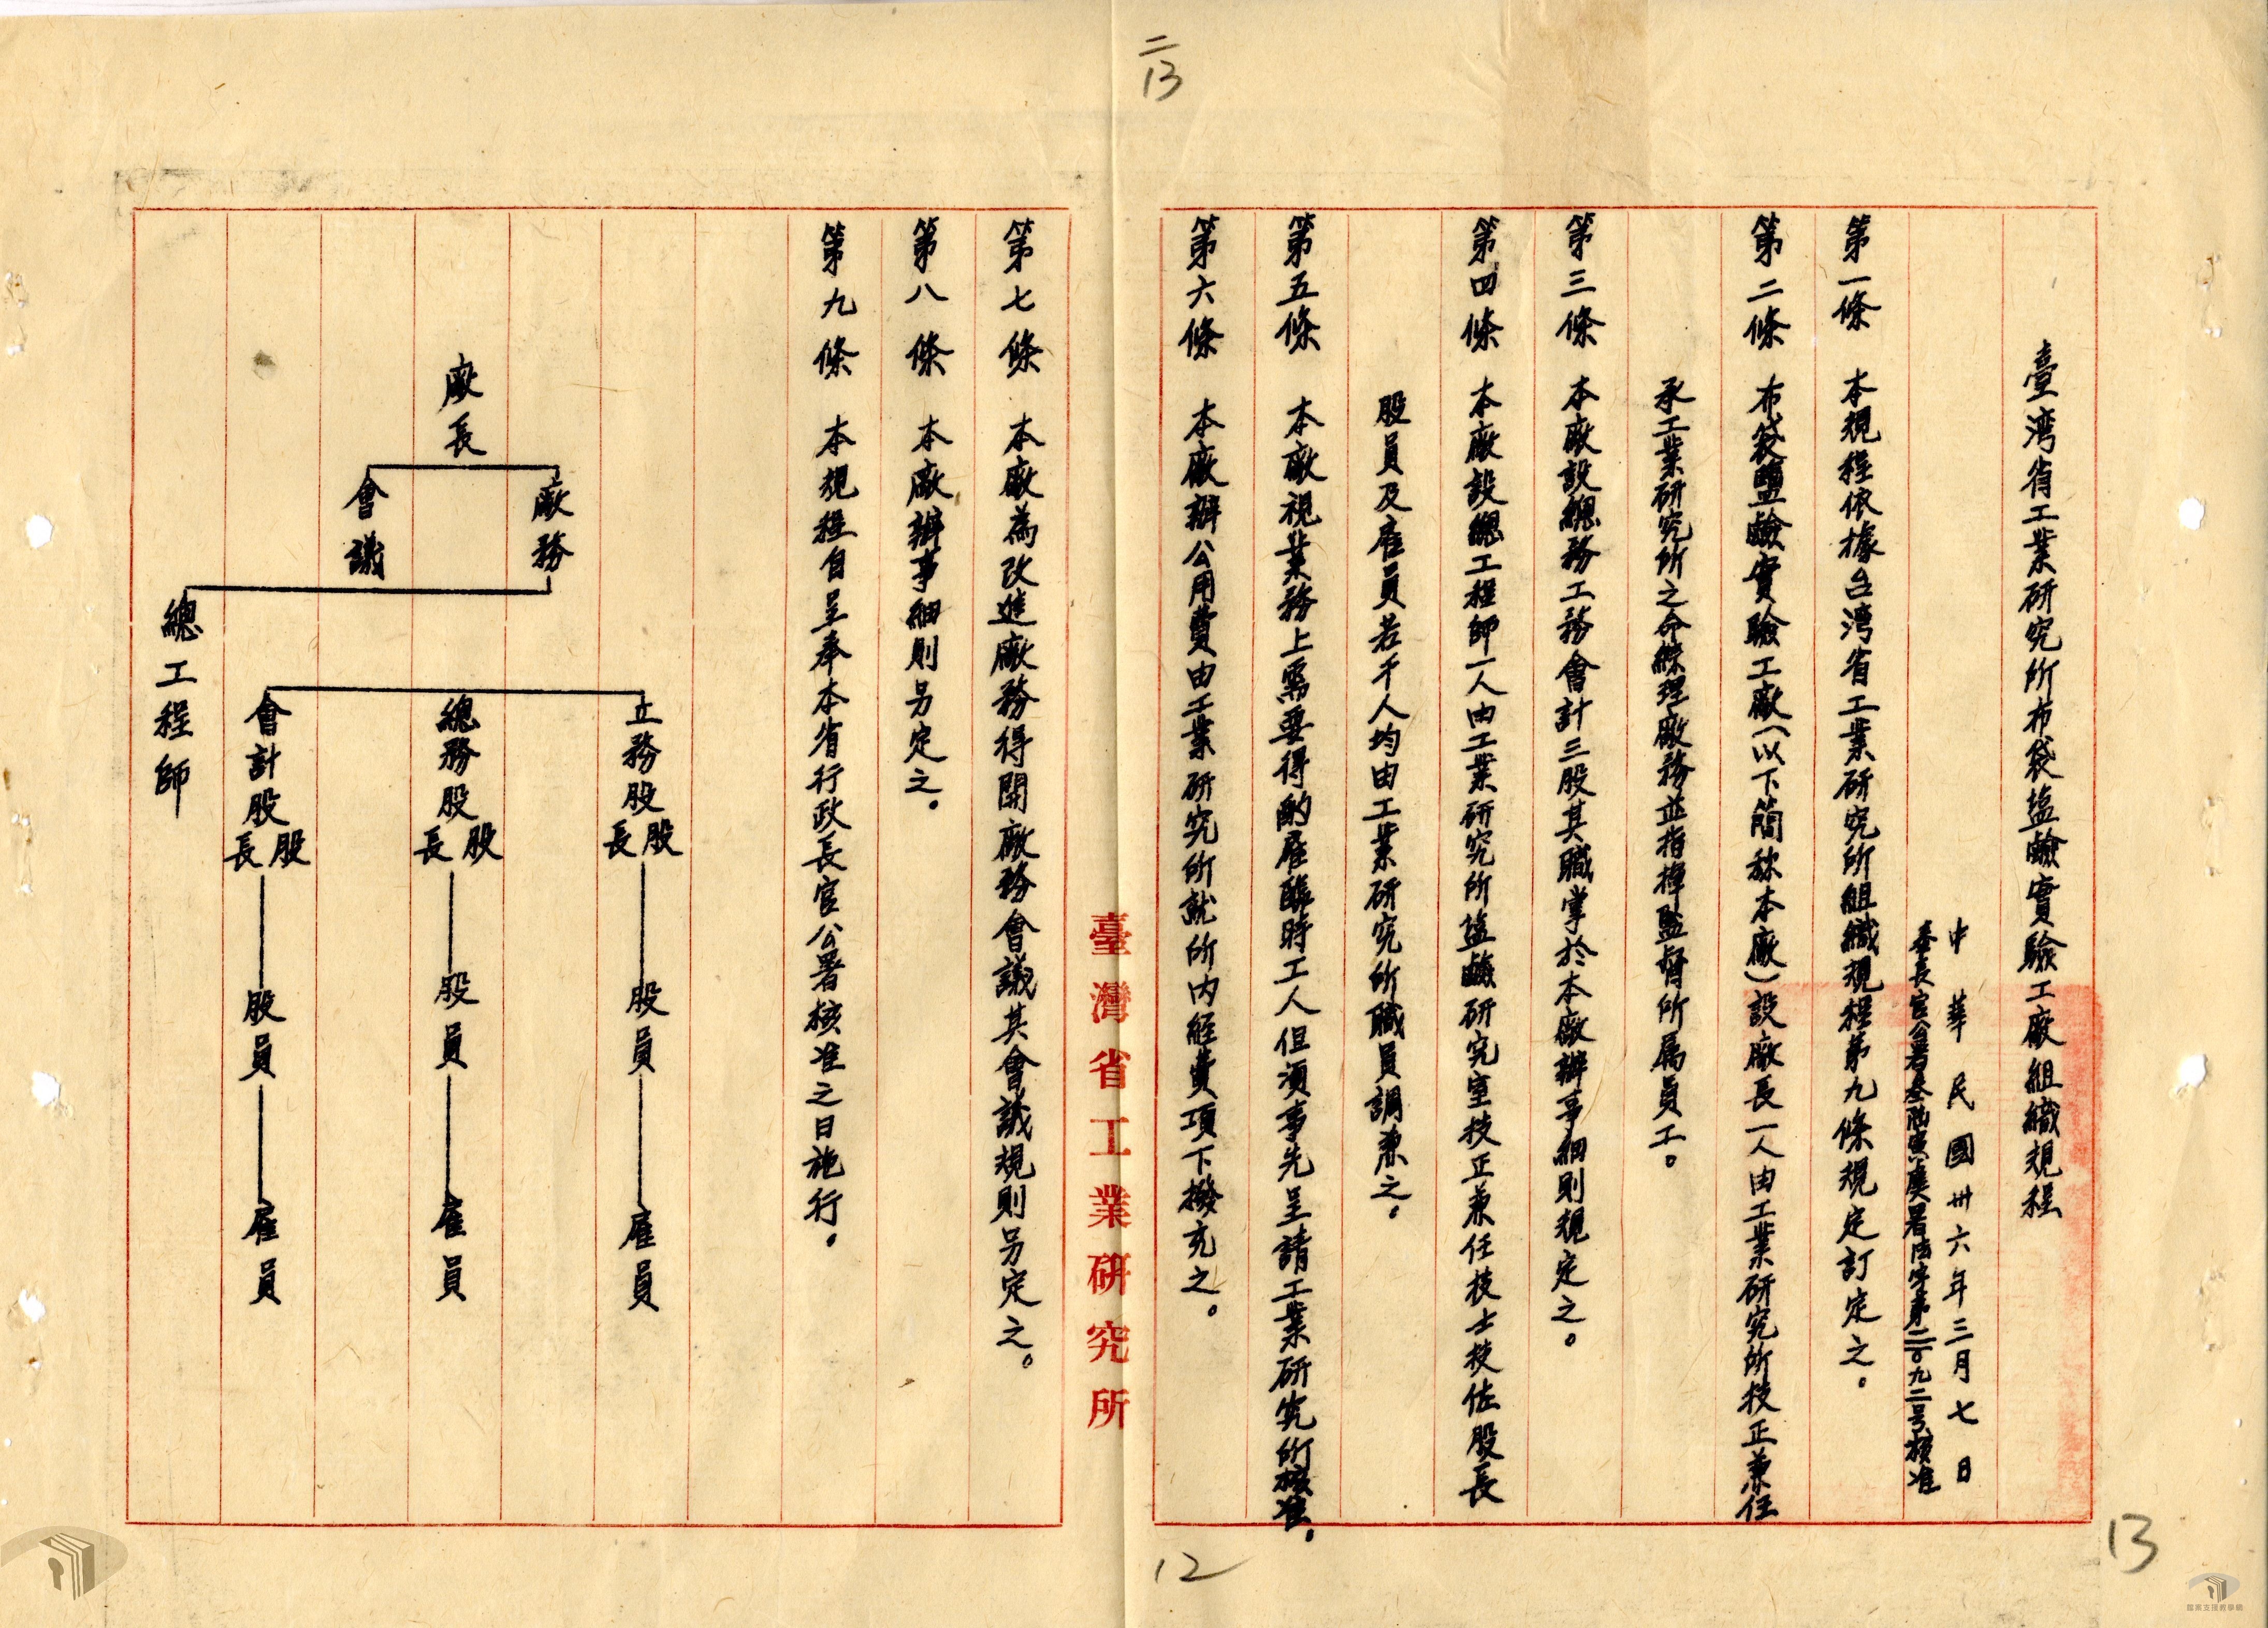 二
13
臺灣省工業研究所布袋塩鹼實驗工廠組織規程
中華民國卅六年三月七日
奉長官公署叁陸寅虞署法字第二〇九二号核准
第一條　本規程依據台灣省工業研究所組織規程第九條規定訂定之。
第二條　布袋鹽鹼實驗工廠（以下簡称本廠）設廠長一人由工業研究所技正兼任
承工業研究所之命綜理廠務並指揮監督所屬員工。
第三條　本廠設總務工務會計三股其職掌於本廠辦事細則規定之。
第四條　本廠設總工程師一人由工業研究所塩鹼研究室技正兼任技士技佐股長
股員及雇員若干人均由工業研究所職員調兼之。
第五條　本廠視業務上需要得酌雇臨時工人但須事先呈請工業研究所核准。
第六條　本廠辦公用費由工業研究所就所內經費項下撥充之。
臺灣省工業研究所
第七條　本廠為改進廠務得開廠務會議其會議規則另定之。
第八條　本廠辦事細則另定之。
第九條　本規程自呈奉本省行政長官公署核准之日施行。
廠長
廠務
會議
總工程師
工務股
股長
股員
雇員
總務股
股長
股員
雇員
會計股
股長
股員
雇員
12
13
檔案支援教學網